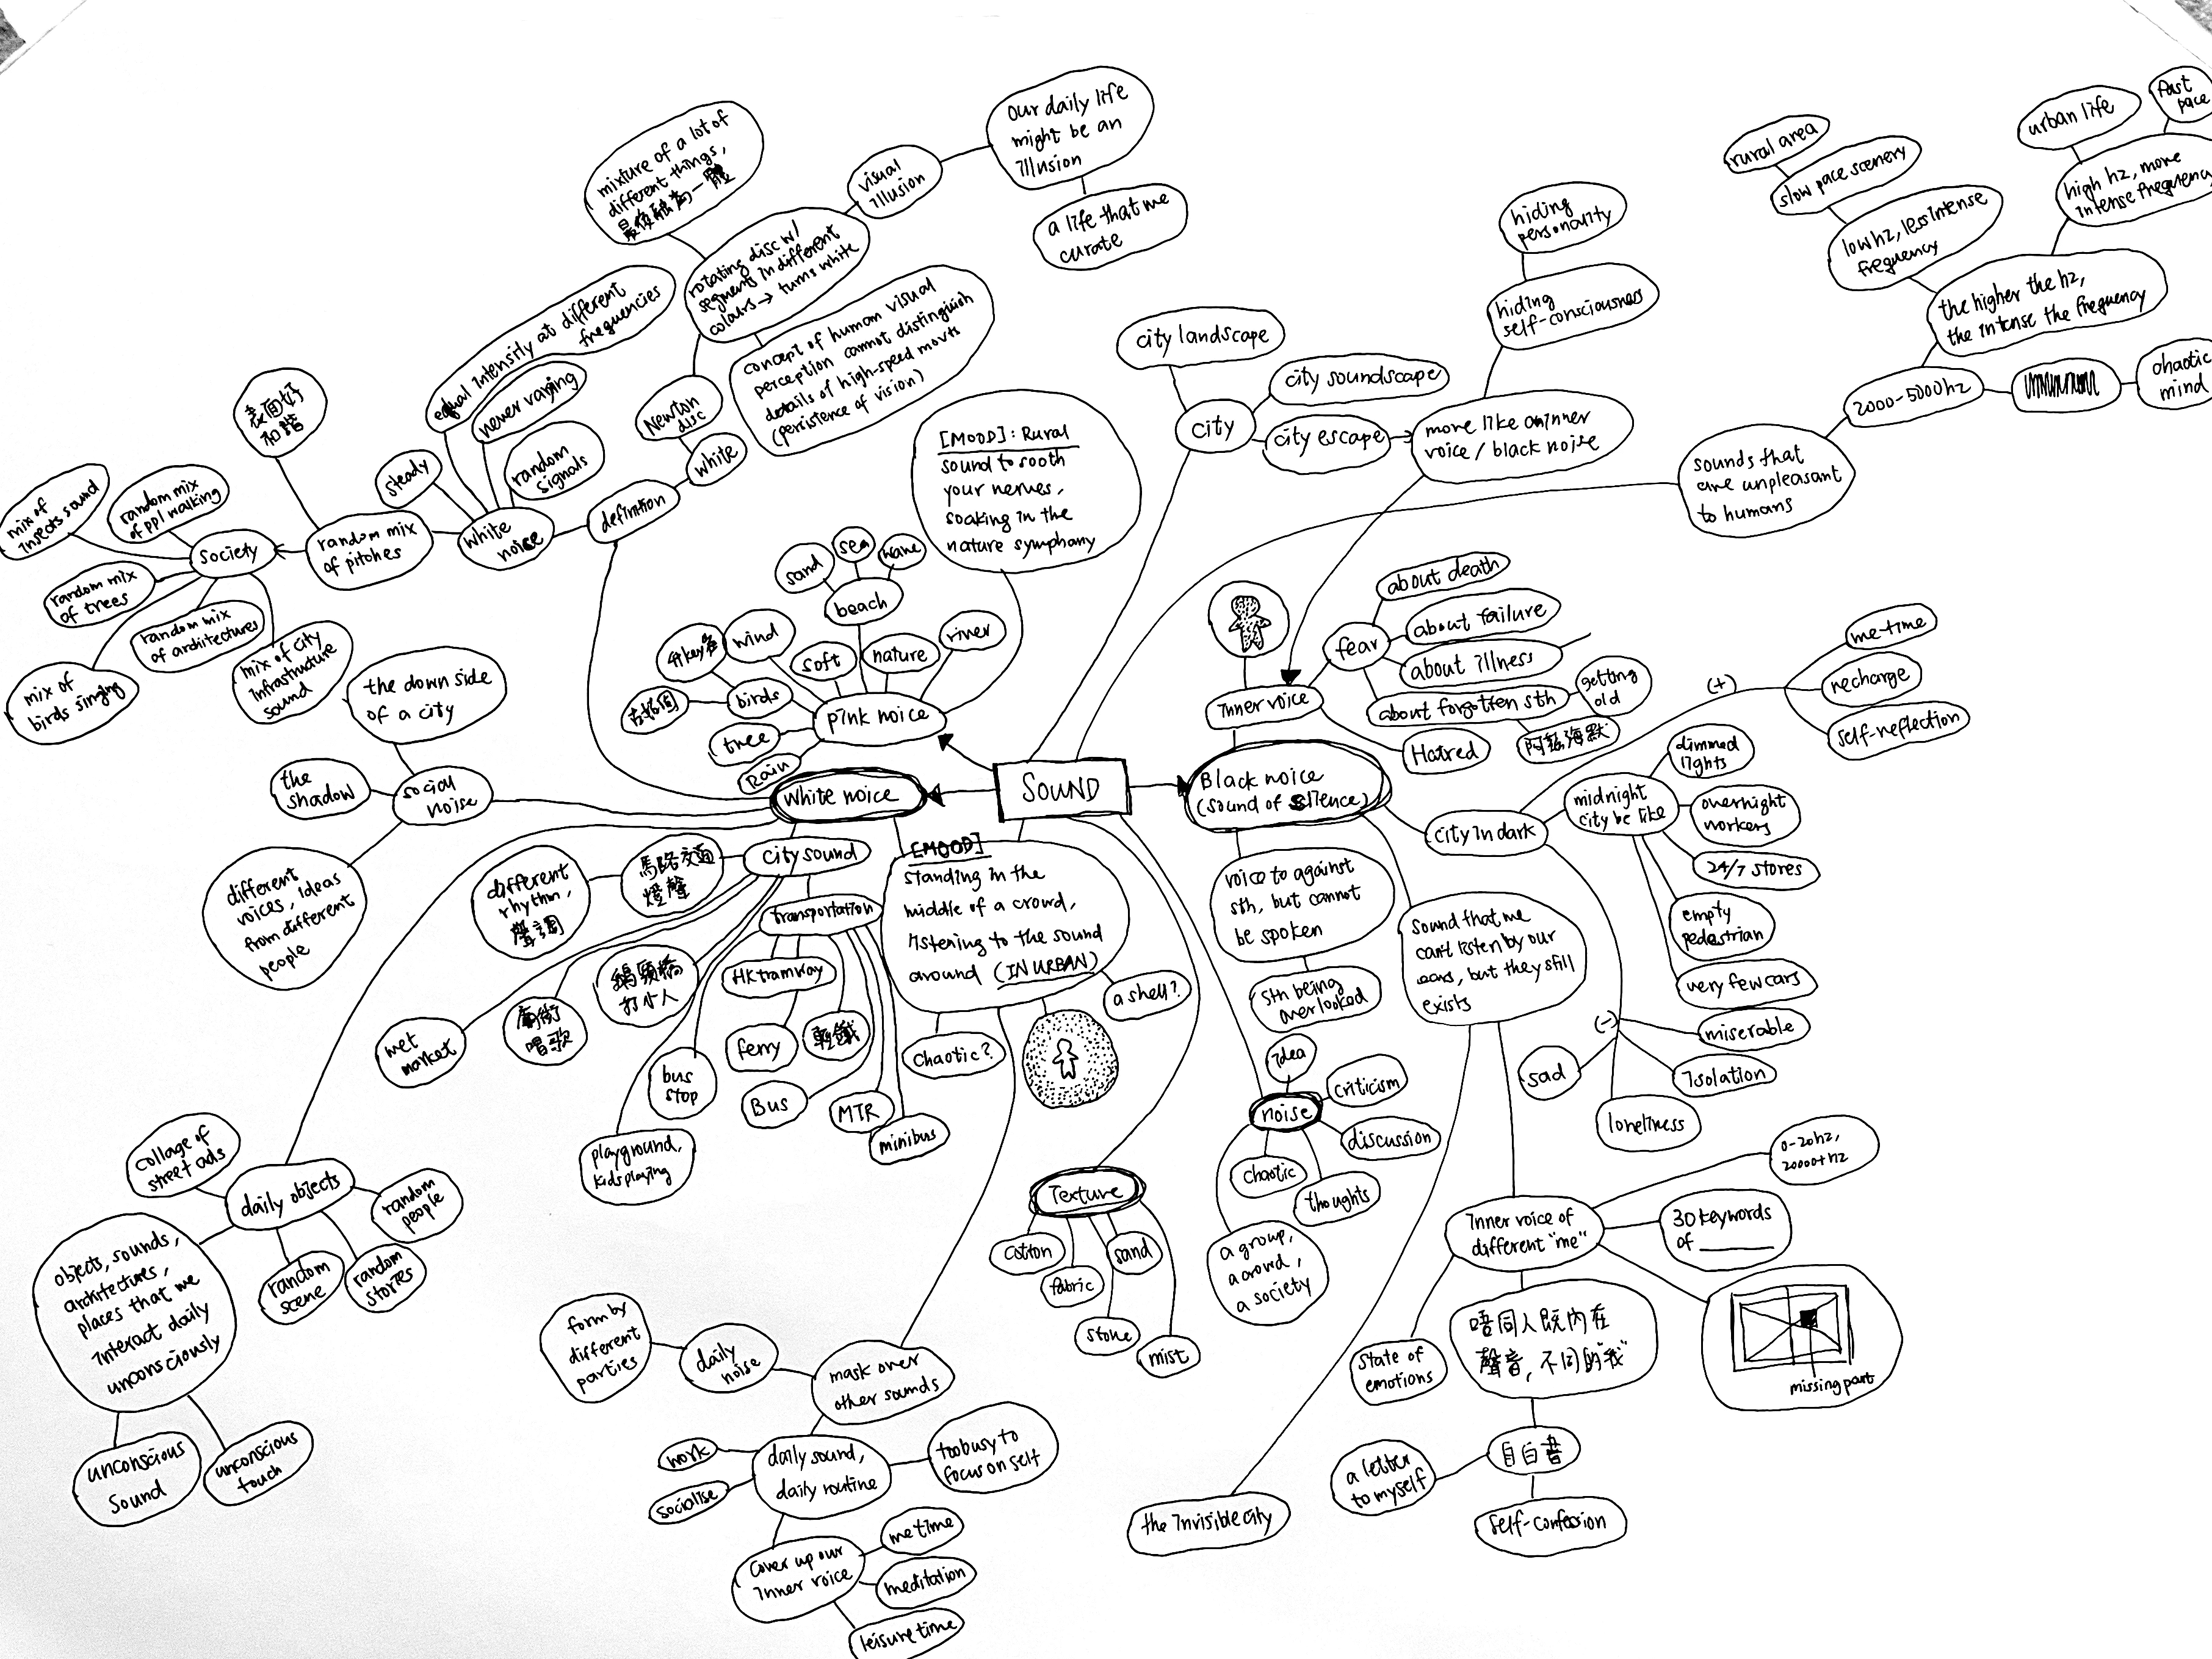 SOUND
white noice
pink noice
Black noice
(sound of silence)
mixture of a lot of
different things,
最後融為一體
rotating disc w/
segments in different
colours → turns white
visual
illusion
our daily life
might be an
illusion
a life that we
curate
concept of human visual
perception cannot distinguish
details of high-speed movts
(persistence of vision)
Newton
disc
white
definition
white
noise
equal intensity at different
frequencies
never varying
random
signals
steady
random mix
of pitches
表面好
和諧
society
mix of
insects sound
random mix
of ppl walking
random mix
of trees
random mix
of architectures
mix of
birds singing
mix of city
infrastructure
sound
the down side
of a city
the
shadow
social
noise
different
voices, ideas
from different
people
[MOOD]: Rural
sound to sooth
your nerves,
soaking in the
nature symphany
sand
sea
wave
beach
wind
soft
nature
river
birds
tree
Rain
city landscape
city soundscape
city
city escape
more like an inner
voice / black noise
hiding
self-consciousness
hiding
personality
rural area
slow pace scenery
low hz, less intense
frequency
urban life
fast
pace
high hz, more
intense frequency
the higher the hz,
the intense the frequency
2000-5000hz
chaotic
mind
sounds that
are unpleasant
to humans
inner voice
fear
about death
about failure
about illness
about forgotten sth
getting
old
Hatred
(+)
me-time
recharge
self-reflection
city in dark
midnight
city be like
dimmed
lights
overnight
workers
24/7 stores
empty
pedestrian
very few cars
(-)
miserable
isolation
loneliness
sad
voice to against
sth, but cannot
be spoken
sth being
overlooked
sound that we
can't listen by our
ears, but they still
exists
city sound
馬路交通
燈聲
different
rhythm,
聲調
transportation
HK tramway
ferry
輕鐵
Bus
MTR
minibus
wet
market
廟街
唱歌
鵝頸橋
打小人
bus
stop
playground,
kids playing
[MOOD]
standing in the
middle of a crowd,
listening to the sound
around (IN URBAN)
chaotic?
a shell?
daily objects
collage of
street ads
random
people
random
scene
random
stories
objects, sounds,
architectures,
places that we
interact daily
unconsciously
unconscious
sound
unconscious
touch
mask over
other sounds
daily
noise
form by
different
parties
daily sound,
daily routine
work
socialise
too busy to
focus on self
cover up our
inner voice
me time
meditation
leisure time
Texture
cotton
fabric
sand
stone
mist
noise
idea
criticism
discussion
chaotic
thoughts
a group,
a crowd,
a society
the invisible city
inner voice of
different "me"
0-20hz,
20000+hz
30 keywords
of ______
missing part
state of
emotions
唔同人既內在
聲音, 不同的"我"
自白書
a letter
to myself
self-confession